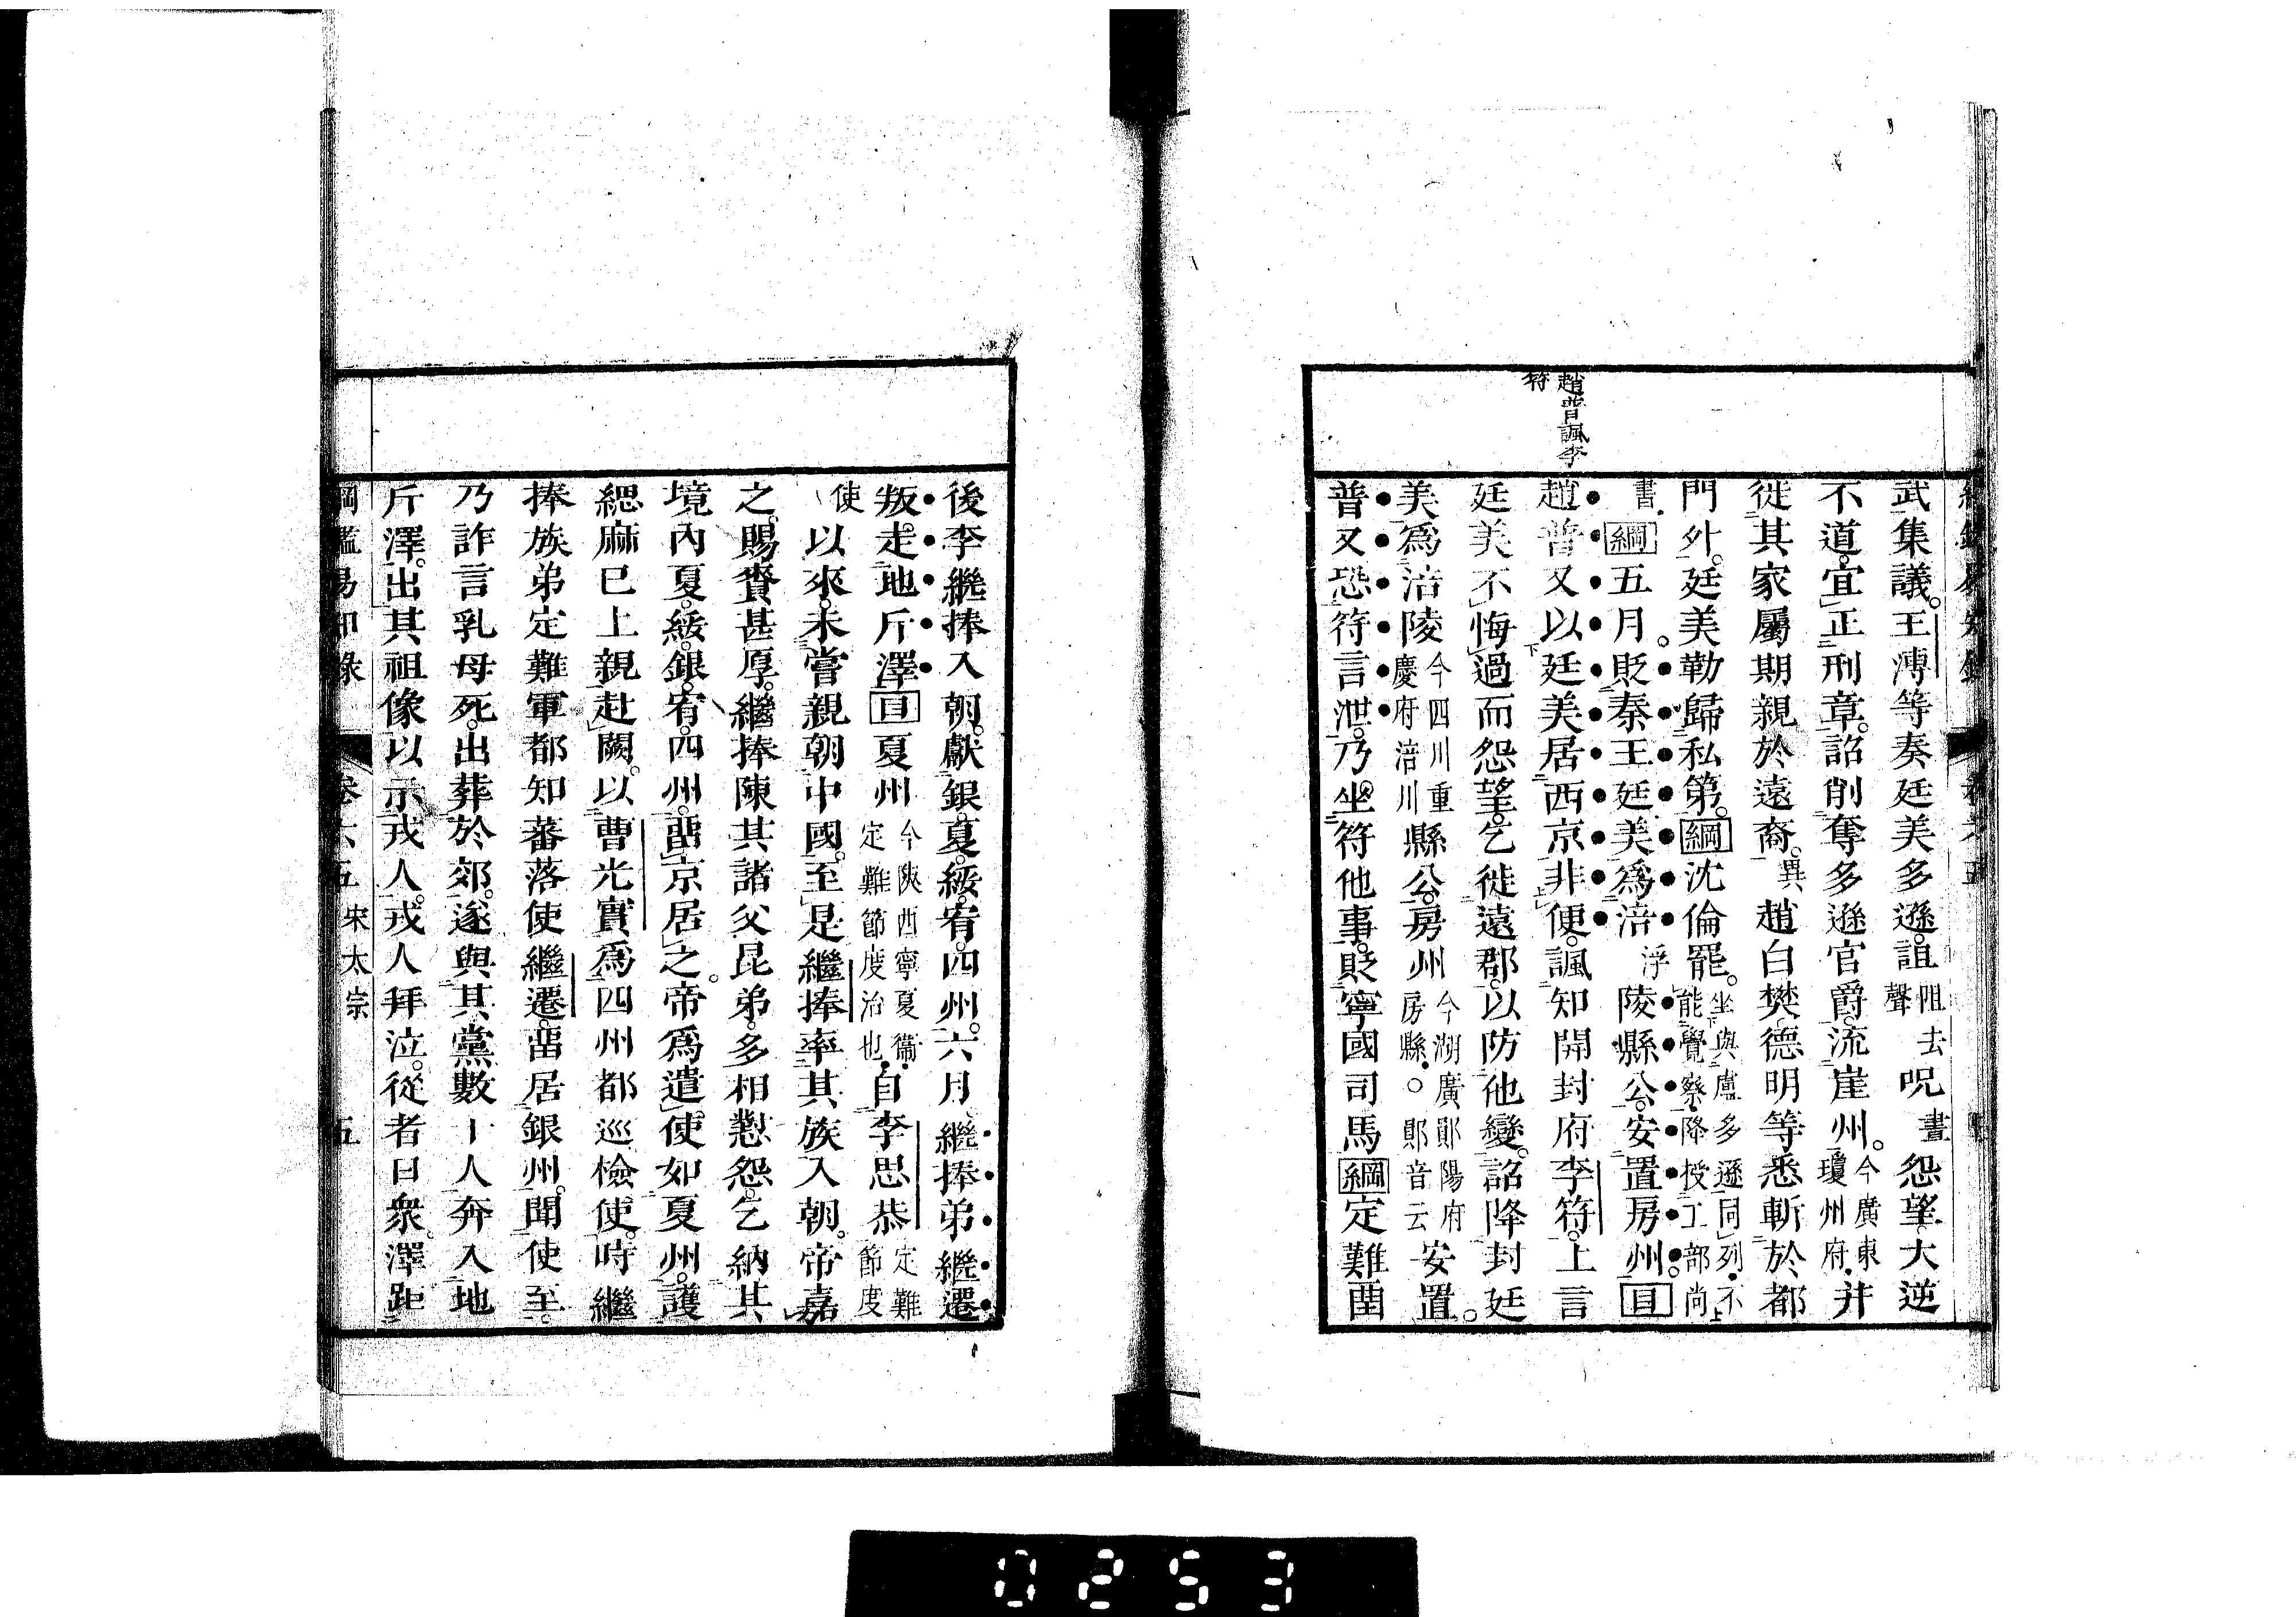 趙普諷李
符
武集議。王溥等奏廷美多遜詛阻去聲呪晝怨望大逆
不道宜正刑章。詔削奪多遜官爵流崖州。今廣東瓊州府。并
徙其家屬期親於遠裔。異趙白樊德明等悉斬於都
門外。廷美勒歸私第。綱沈倫罷。坐與盧多遜同列不能覺察降授工部尚
書。綱五月。貶秦王廷美爲涪浮陵縣公安置房州。目
趙普又以廷美居西京非便。諷知開封府李符。上言
廷美不悔過而怨望。乞徙遠郡。以防他變。詔降封廷
美爲涪陵今四川重慶府涪川縣公。房州今湖廣鄖陽府房縣。○鄖音云安置。
普又恐符言泄。乃坐符他事。貶寧國司馬綱定難留
後李繼捧入朝。獻銀夏綏宥四州。六月繼捧弟繼遷
叛。走地斤澤目夏州今陝西寧夏衞定難節度治也自李思恭定難節度
使以來。未嘗親朝中國。至是繼捧率其族入朝。帝嘉
之。賜賚甚厚。繼捧陳其諸父昆弟。多相懟怨。乞納其
境內夏綏銀宥四州。留京居之。帝爲遣使如夏州。護
緦麻已上親赴闕。以曹光實爲四州都巡檢使。時繼
捧族弟定難軍都知蕃落使繼遷。留居銀州。聞使至。
乃詐言乳母死。出葬於郊。遂與其黨數十人奔入地
斤澤。出其祖像以示戎人。戎人拜泣。從者日衆。澤距
綱鑑易知錄 卷六五 宋太宗 五
0253